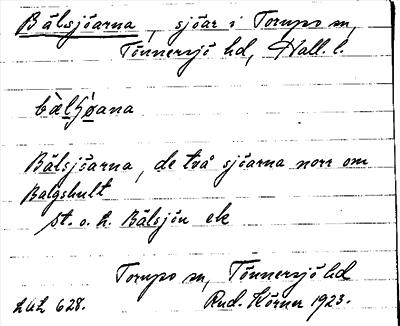 Bälsjöarna, sjöar i Torups sn,
Tönnersjö hd, Hall. l.
bä̀lʃø̀ana
Bälsjöarna, de två sjöarna norr om
Balgshult
st. o. l. Bälsjön ek
Torups sn, Tönnersjö hd
LUL 628. Rud. Hörner 1923.